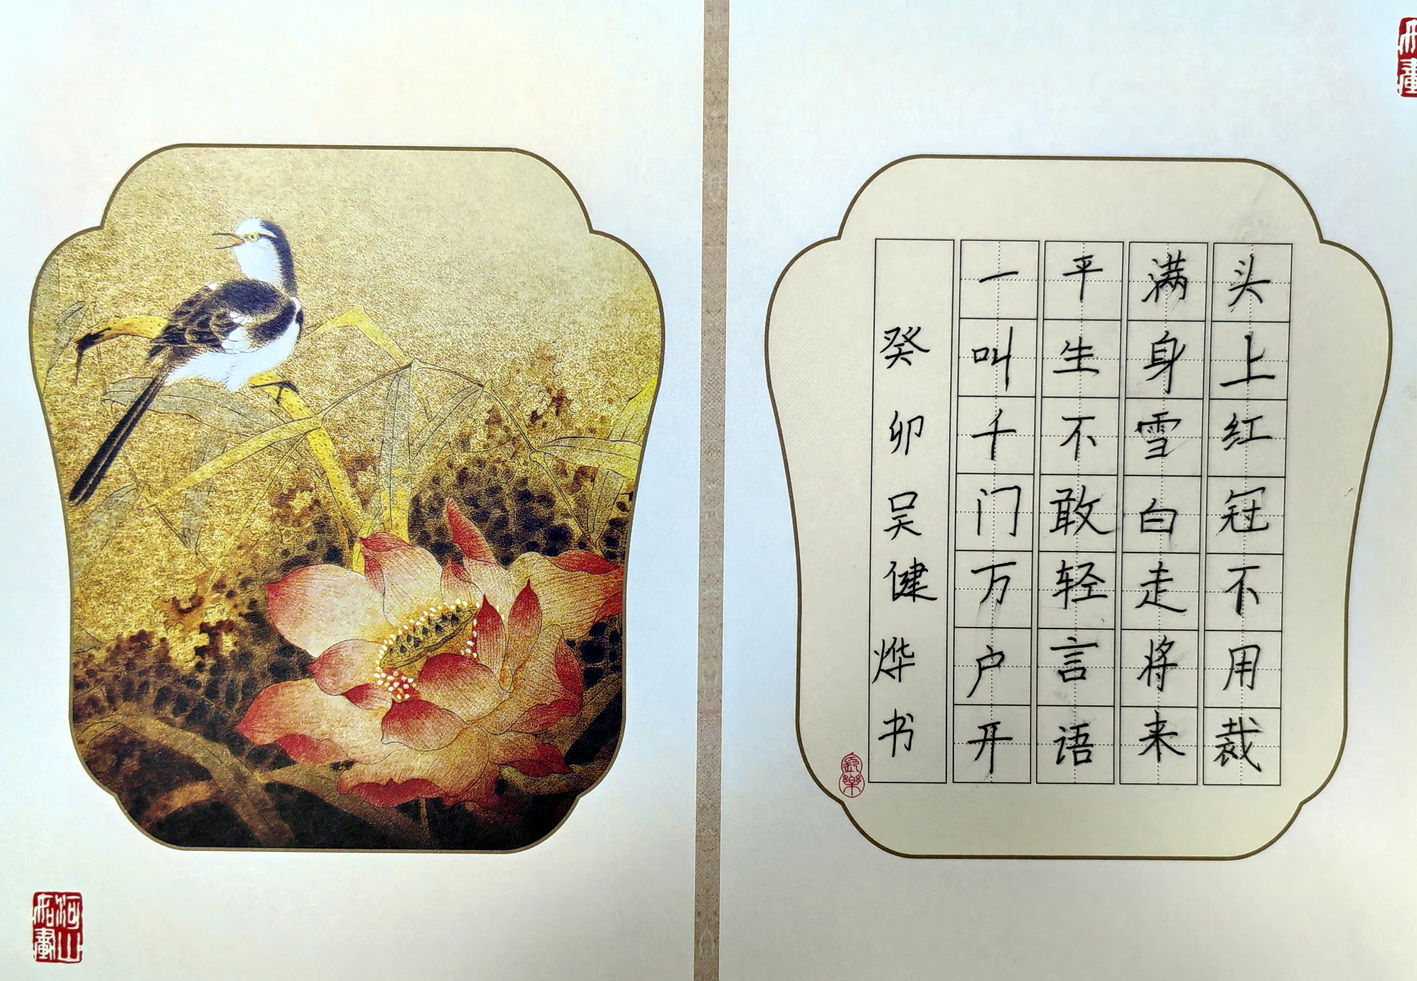 头上红冠不用裁
满身雪白走将来
平生不敢轻言语
一叫千门万户开
癸卯吴健烨书
河山
如画